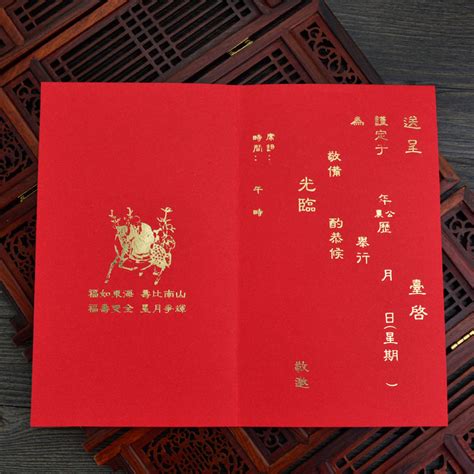 送呈 臺啓
謹定于 年公農歷 月 日(星期 )
為 舉行
敬備 酌恭候
光臨
敬邀
席設:
時間: 午 時
福如東海 壽比南山
福壽雙全 星月爭輝